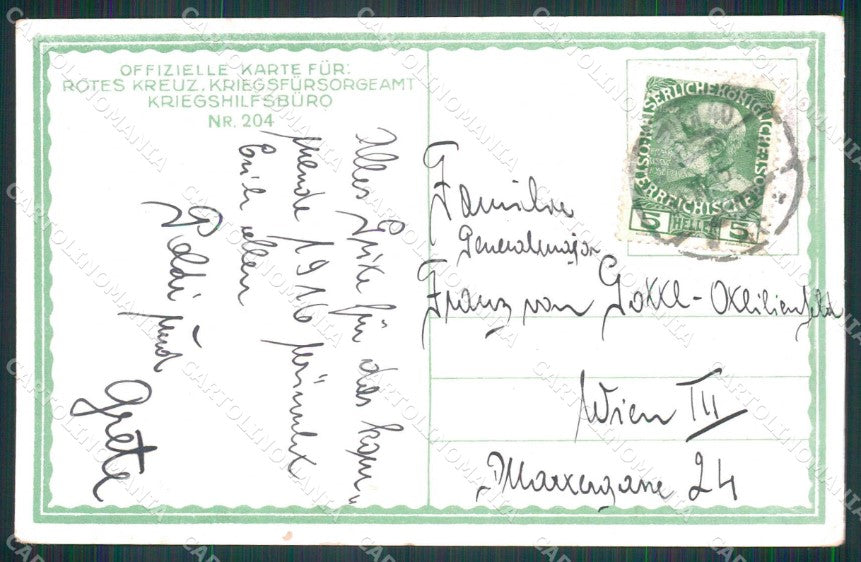 OFFIZIELLE KARTE FÜR:
ROTES KREUZ, KRIEGSFÜRSORGEAMT
KRIEGSHILFSBÜRO
NR. 204
Alles für das kom-
mende 1916 wünscht
Euch allen
Poldi und
Grete
KAISERLICHE KÖNIGLICHE ÖSTERREICHISCHE POST
5 HELLER 5
Familie
Generalmajor
Franz von
Wien III
24
CARTOLINOMANIA